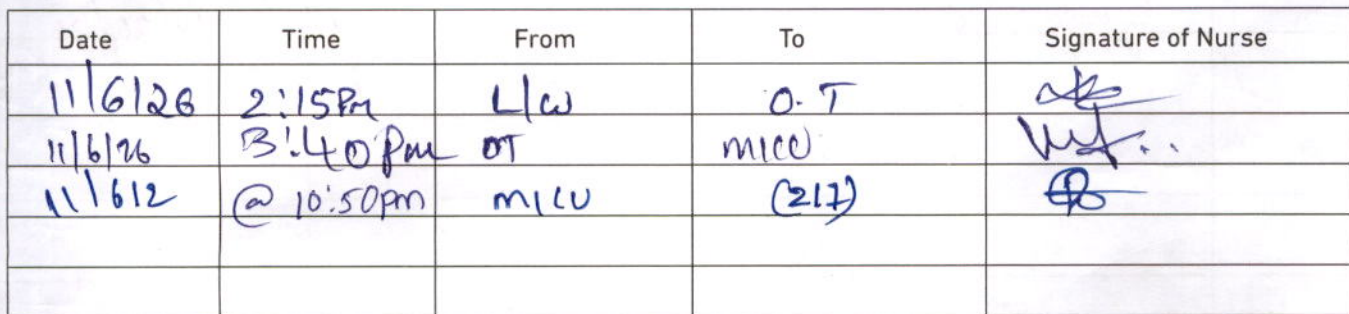 Date Time From To Signature of Nurse
11/6/26 2:15Pm L/W O.T
11/6/26 3:40 Pm OT MICU
11/6/2 @ 10:50pm MICU (217)